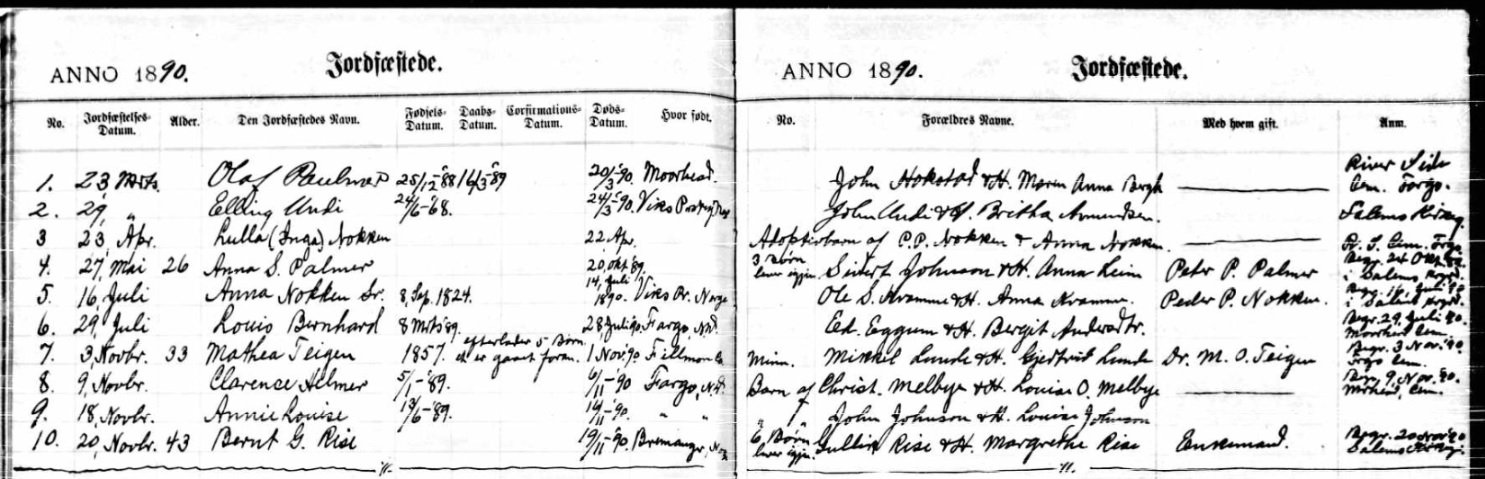 ANNO 1890. Jordfæstede.
No. Jordfæstelses-Datum. Alder. Den Jordfæstedes Navn. Fødsels-Datum. Daabs-Datum. Corfirmations-Datum. Døds-Datum. Hvor født.
1. 23, Mrts. Olaf Paulmar 25/12-88 16/3-89 20/3-90. Moorhead.
2. 29, " Elling Undi 24/6-68. 24/3-90. Viks
3 23, Apr. Lulla (Inga) Nokken 22 Apr.
4. 27, Mai 26 Anna S. Palmer 20, Okt 89.
5. 16, Juli Anna Nokken Sr. 8, Sep. 1824. 14, Juli 1890. Viks Pr. Norge
6. 29, Juli Louis Bernhard 8 Mrts 89. 28 Juli 90. Fargo, N.D.
7. 3, Novbr. 33 Mathea Teigen 1857. efterlader 5 Børn. 1 Nov. 90 Fillmore Co
8. 9, Novbr. Clarense Helmer 5/1-89. 6/11-90 Fargo, N.D.
9. 18, Novbr. Annie Louise 14/11-90. " "
10. 20, Novbr. 43 Bernt G. Rise 19/11-90. Bremanger,
ANNO 1890. Jordfæstede.
No. Forældres Navne. Med hvem gift. Anm.
John Hokstad & H. Maren Anna Bergh River Side Cem. Fargo.
John Undi & H. Britha Amundsen. Salems
Adoptivbarn af P. P. Nokken & Anna Nokken.
3 Børn lever igjen Sivert Johnson & H. Anna Leim Peter P. Palmer Begr. 24 Okt. 89 i Salems
Ole S. Kramme & H. Anna Kramme. Peder P. Nokken. Begr. 16, Juli 90 i Salems
Ed. Eggum & H. Bergit Begr. 29, Juli 90. Moorhead Cem.
Minn. Mikkel Lunde & H. Gjertrud Lunde Dr. M. O. Teigen Begr. 3 Nov. 90 Fargo Cem.
Barn af Christ. Melbye & H. Louise O. Melbye Begr. 9, Nov. 90. Cem.
" " John Johnson & H. Louise Johnson
6, Børn lever igjen. Rise & H. Margrethe Rise Enkemand. Begr. 20 Nov 90 Salems